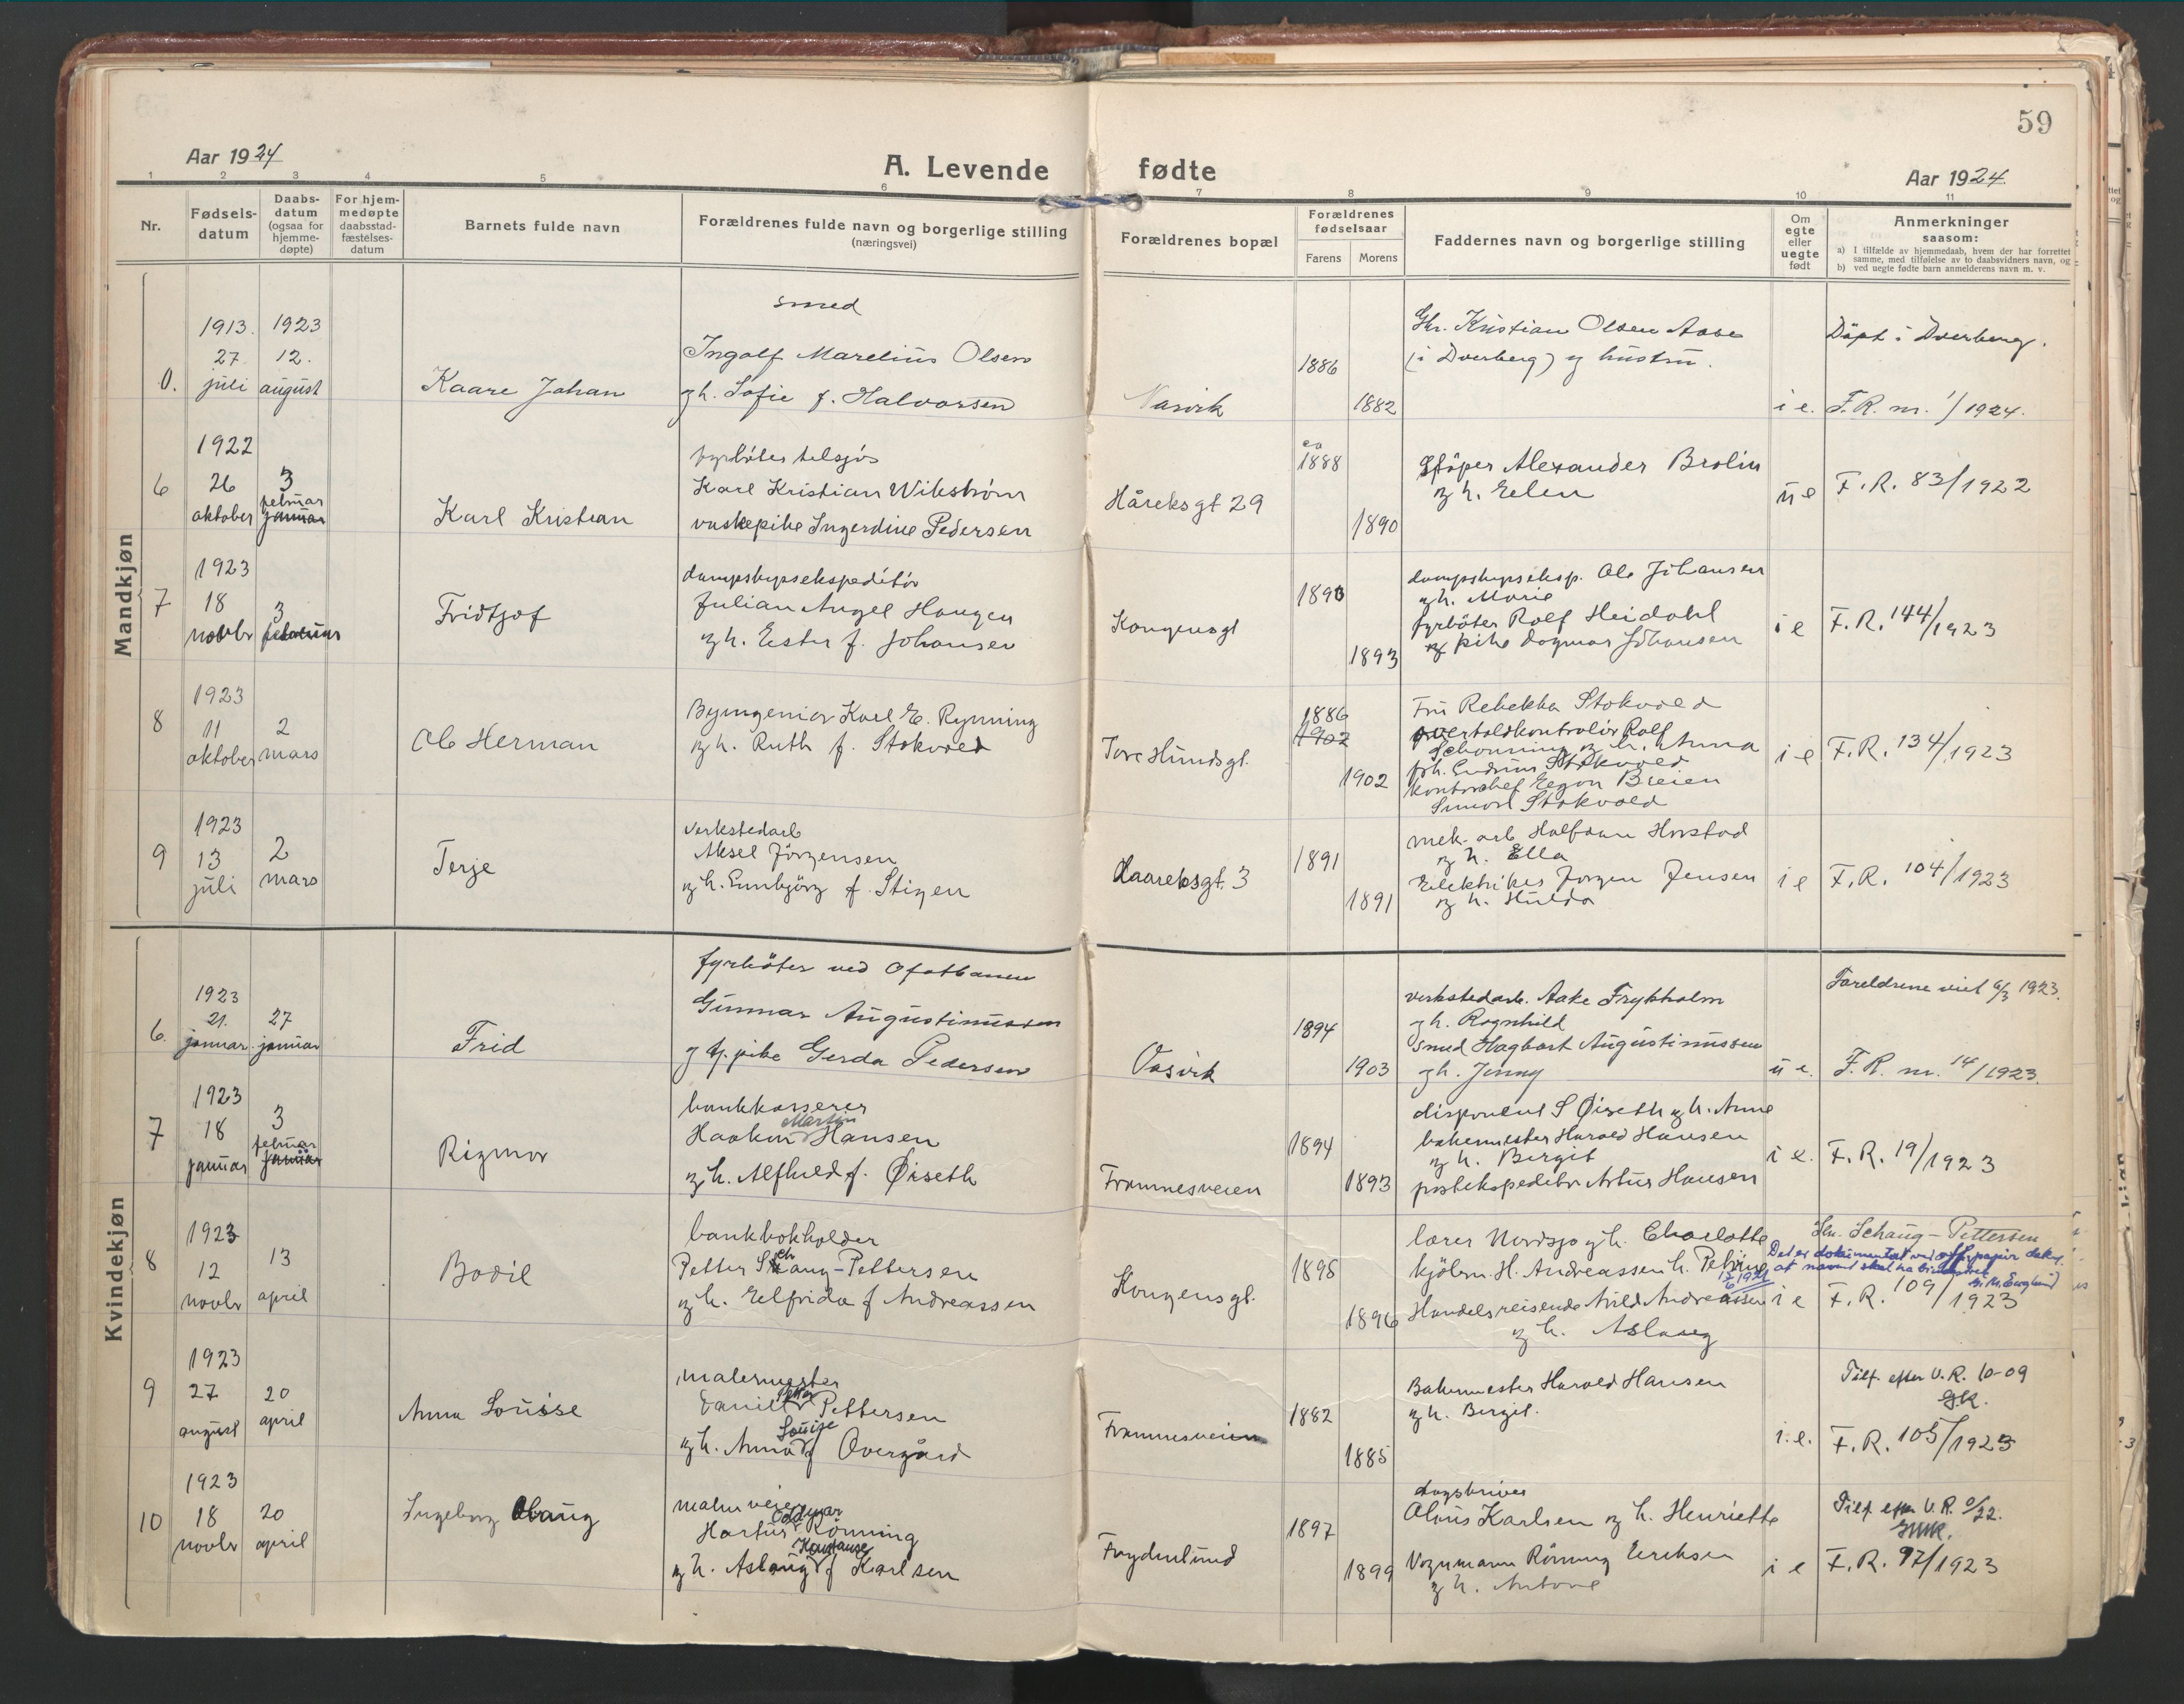 59
Aar 1924
A. Levende fødte
Aar 1924
1 2 3 4 5 6 7 8 9 10 11
Nr.
Fødsels-
datum
Daabs-
datum
(ogsaa for
hjemme-
døpte)
For hjem-
medøpte
daabsstad-
fæstelses-
datum
Barnets fulde navn
Forældrenes fulde navn og borgerlige stilling
(næringsvei)
Forældrenes bopæl
Forældrenes
fødselsaar
Farens Morens
Faddernes navn og borgerlige stilling
Om
egte
eller
uegte
født
Anmerkninger
saasom:
a) I tilfælde av hjemmedaab, hvem der har forrettet
samme, med tilføielse av to daabsvidners navn, og
b) ved uegte fødte barn anmelderens navn m. v.
Mandkjøn
0.
1913.
27.
juli
1923
12.
august
Kaare Johan
smed
Ingolf Marelius Olsen
og h. Sofie f. Halvorsen
Narvik
1886
1882
Kristian Olsen Aase
(i Dverberg) og hustru.
i e.
Döpt i Dverberg.
F.R. nr. 1/1924.
6
1922
26
oktober
3
februar
januar
Karl Kristian
fyrböter tilsjös
Karl Kristian Wikström
vaskepike Ingerdine Pedersen
Håreksgt 29
ca
1888
1890
Støper Alexander Brolin
og h. Elen
u e
F.R. 83/1922
7
1923
18
novbr
3
februar
Fridtjof
dampskipsekspeditör
Julian Angel Haugen
og h. Ester f. Johansen
Kongensgt
1890
1893
dampskipseksp. Ole Johansen
og h. Marie
fyrböter Rolf Heidahl
og pike Dagmar Johansen
i e
F.R. 144/1923
8
1923
11
oktober
2
mars
Ole Herman
Byingeniör Karl E. Rynning
og h. Ruth f. Stokvold
Tore Hundsgt.
1886
1902
1902
Fru Rebekka Stokvold
overtoldkontrolör Rolf
Schonning og h. Anna
frk. Gudrun Stokvold
kontorchef Egon Breien
Simon Stokvold
i e
F.R. 134/1923
9
1923
13
juli
2
mars
Terje
verkstedarb
Aksel Jörgensen
og h. Gunbjörg f. Stigen
Haareksgt. 3
1891
1891
mek. arb Halfdan Horstad
og h. Ella
Elektriker Jörgen Jensen
og h. Hulda
i e
F.R. 104/1923
Kvindekjøn
6.
1923
21.
januar
27
januar
Frid
fyrböter ved Ofotbanen
Gunnar Augustinussen
og tj.pike Gerda Pedersen
Oasvik
1894
1903
verkstedarb. Aake Frykholm
og h. Ragnhild
smed Hagbart Augustinussen
og h. Jenny
u e.
Foreldrene viet 6/3 1923.
F.R. nr. 14/1923.
7
1923
18
januar
3
februar
januar
Rigmor
bankkasserer
Martin
Haakon Hansen
og h. Alfhild f. Øiseth
Framnesveien
1894
1893
disponent S Øiseth og h. Anne
bakermester Harald Hansen
og h. Bergit
postekspeditör Artur Hansen
i e.
F.R. 19/1923
8
1923
12
novbr
13
april
Bodil
bankbokholder
Petter Schaug-Pettersen
og h. Elfrida f Andreassen
Kongensgt.
1895
1896
lærer Nordsjo og h. Charlotte
kjöbm. H. Andreassen h. Petrine
Handelsreisende Arild Andreassen
og h. Aslaug
i e
Schaug-Pettersen
F.R. 109/1923
9
1923
27
august
20
april
Anna Louise
malermester
Daniel Pettersen
Louise
og h. Anna f Overgård
Framnesveien
1882
1885
Bakermester Harald Hansen
og h. Bergit.
i.e.
Tilf. efter V.R. 10-09
F.R. 105/1923
10
1923
18
novbr
20
april
Ingeborg Obaug
malmveier
Oddmar
Hartur Rönning
Konstanse
og h. Aslaug f Karlsen
Frydenlund
1897
1899
dagskriver
Alvis Karlsen og h. Henriette
Vognmann Rönning Eriksen
og h. Antone
i e
Tilf. efter V.R. 9/22.
F.R. 97/1923